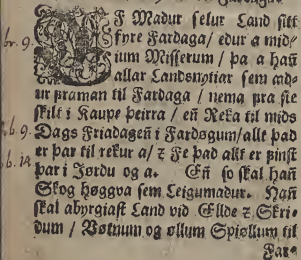 EF Madur selur Land sitt
fyre Fardaga / edur a mid-
ium Misserum / þa a hañ
allar Landsnytiar sem ad-
ur þramañ til Fardaga / nema þra sie
skilt i Kaupe þeirra / eñ Reka til mids
Dags Friadageñ i Fardøgum / allt þad
er þar til rekur a / ꝛ Fe þad allt er finst
þar i Jørdu og a. Eñ so skal hañ
Skog høggva sem Leigumadur. Hañ
skal abyrgiast Land vid Ellde ꝛ Skri-
dum / Vøtnum og øllum Spiøllum til
Far-
br. 9.
b. 9.
b. 12